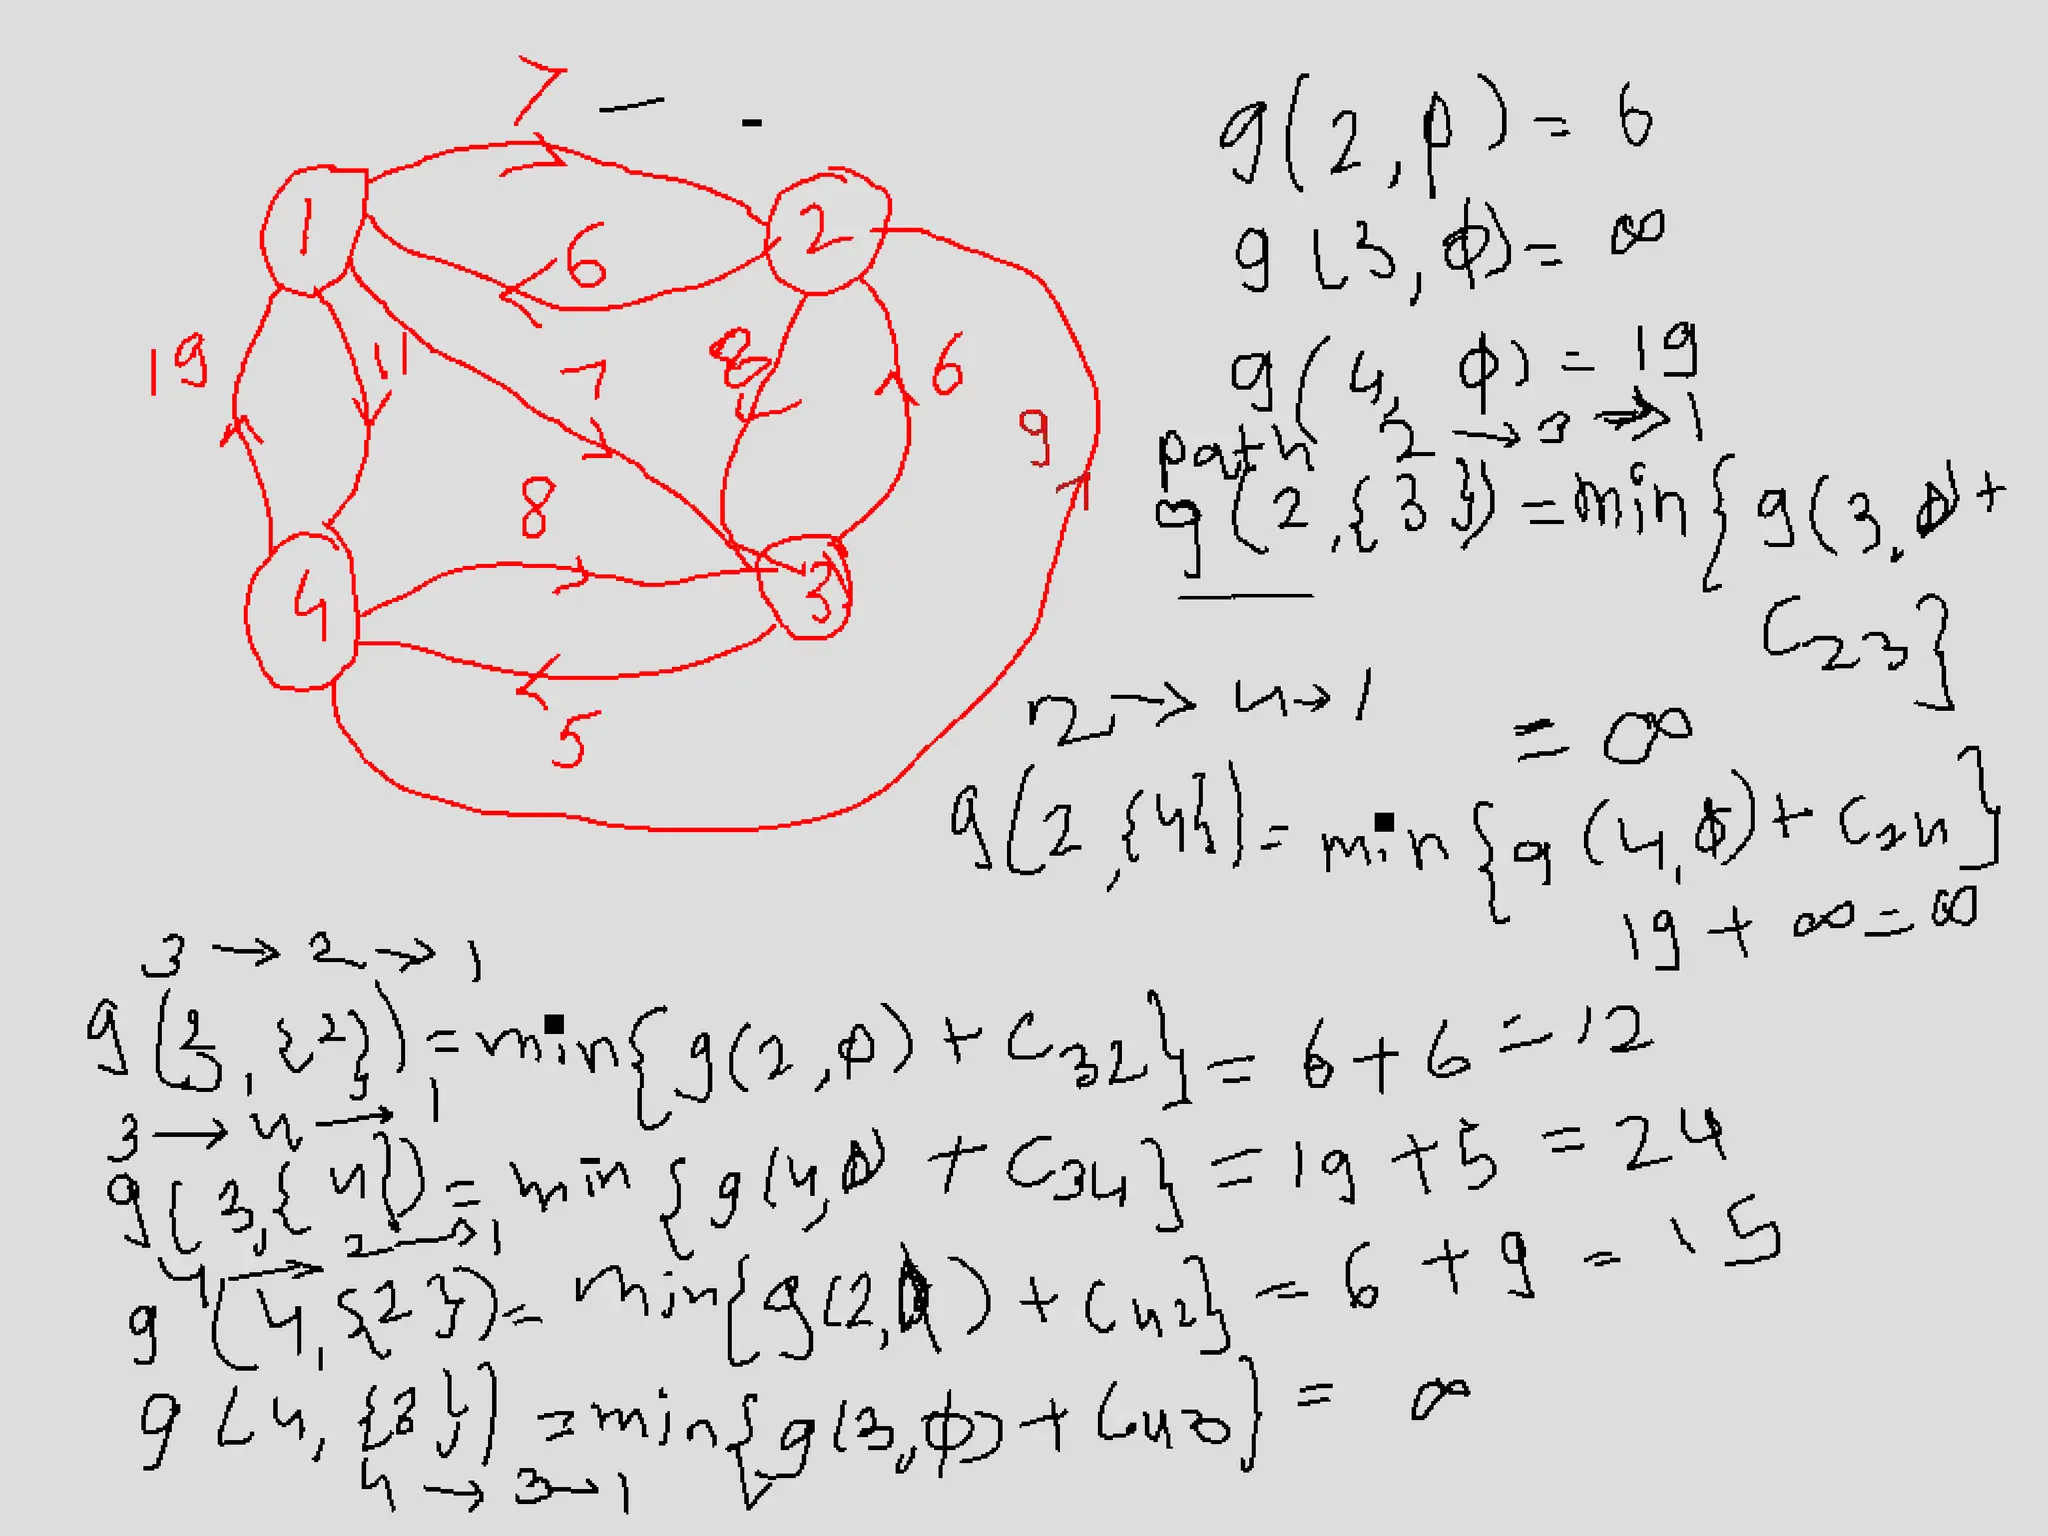 7
1
2
6
19
11
7
8
6
9
8
4
3
5
g(2,φ) = 6
g(3,φ) = ∞
g(4,φ) = 19
path 2 → 3 → 1
g(2,{3}) = min{g(3,φ)+
C23}
= ∞
2 → 4 → 1
g(2,{4}) = min{g(4,φ)+C24}
19 + ∞ = ∞
3 → 2 → 1
g(3,{2}) = min{g(2,φ) + C32} = 6 + 6 = 12
3 → 4 → 1
g(3,{4}) = min{g(4,φ) + C34} = 19 + 5 = 24
4 → 2 → 1
g(4,{2}) = min{g(2,φ) + C42} = 6 + 9 = 15
g(4,{3}) = min{g(3,φ) + C43} = ∞
4 → 3 → 1